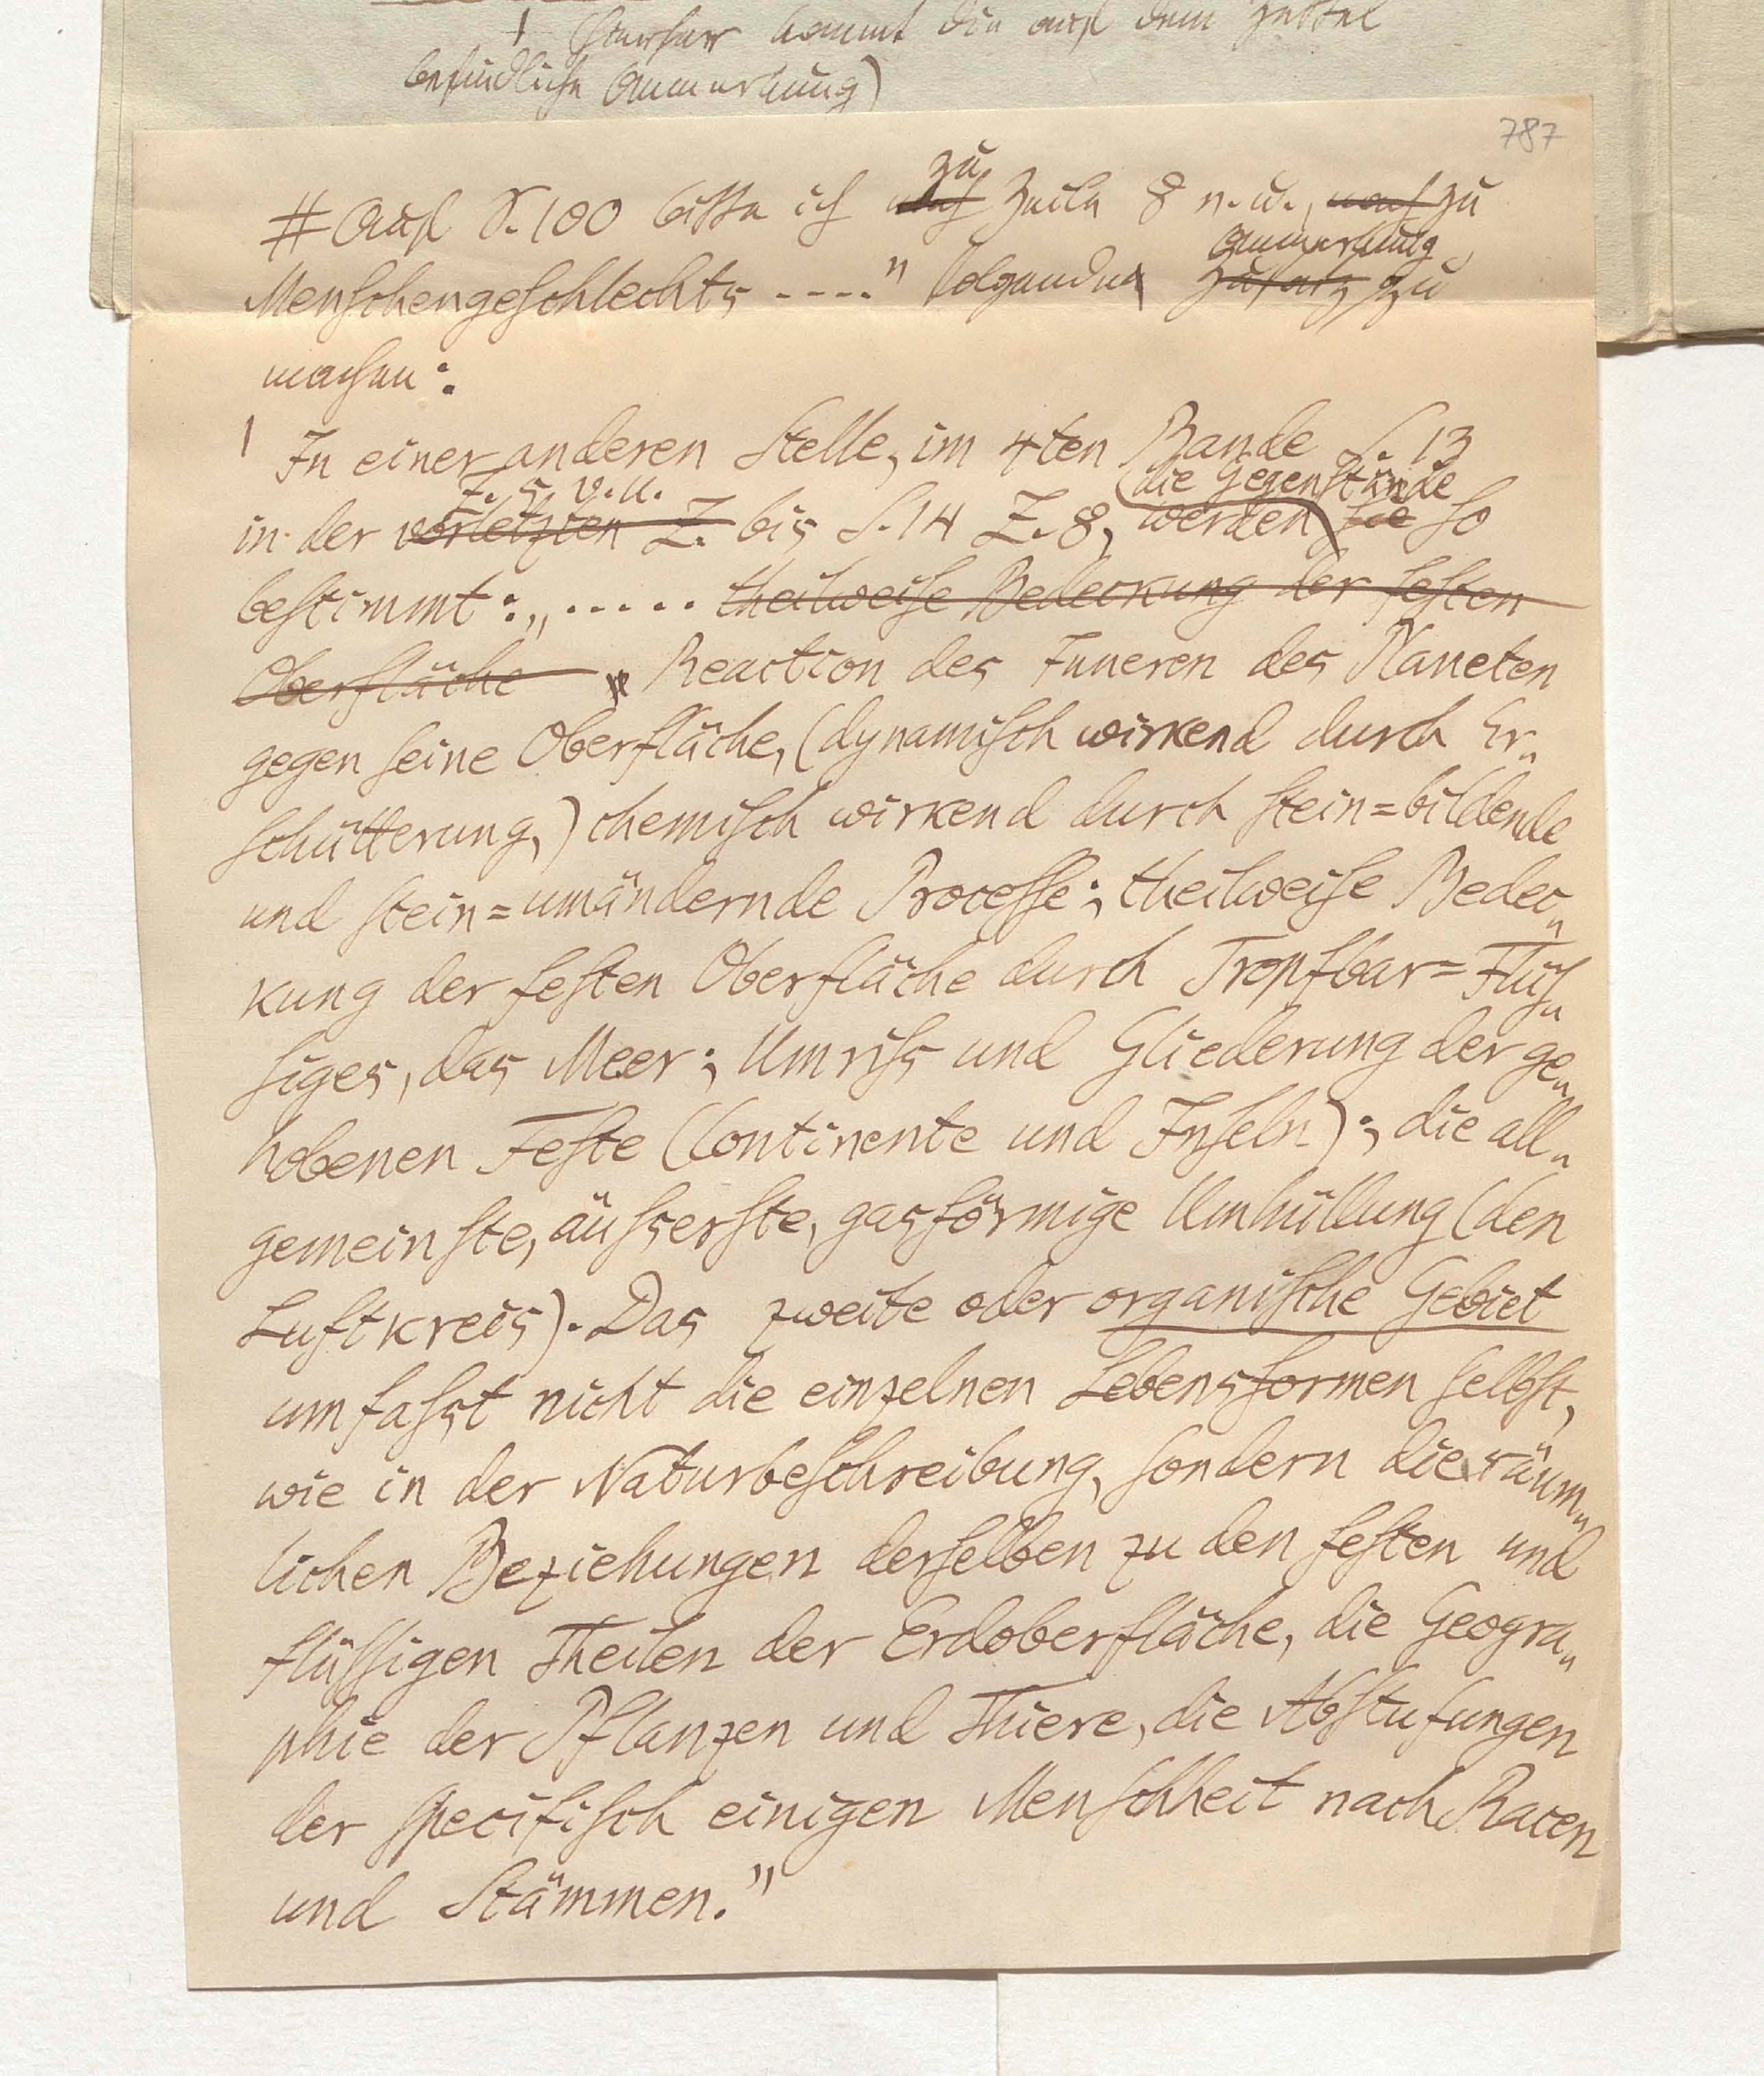 (hierher kommt die auf dem Zettel
befindliche Anmerkung)
787
# Auf S. 100 bitte ich nach zu Zeile 8 v. u., nach zu
Menschengeschlechts ----" folgenden Zusatz Anmerkung zu
machen:
In einer anderen Stelle, im 4ten Bande S. 13
in der vorletzten Z. Z. 5 v. u. bis S. 14 Z. 8, werden die Gegenstände sie so
bestimmt: „..... theilweise Bedeckung der festen
Oberfläche „Reaction des Inneren des Planeten
gegen seine Oberfläche, (dynamisch wirkend durch Er„
schütterung,) chemisch wirkend durch stein=bildende
und stein=umändernde Processe; theilweise Bedec„
kung der festen Oberfläche durch Tropfbar=Flüs„
siges, das Meer; Umriss und Gliederung der ge„
hobenen Feste (Continente und Inseln); die all„
gemeinste, äusserste, gasförmige Umhüllung (den
Luftkreis). Das zweite oder organische Gebiet
umfasst nicht die einzelnen Lebensformen selbst,
wie in der Naturbeschreibung, sondern die räum„
lichen Beziehungen derselben zu den festen und
flüssigen Theilen der Erdoberfläche, die Geogra„
phie der Pflanzen und Thiere, die Abstufungen
der specifisch einigen Menschheit nach Racen
und Stämmen."